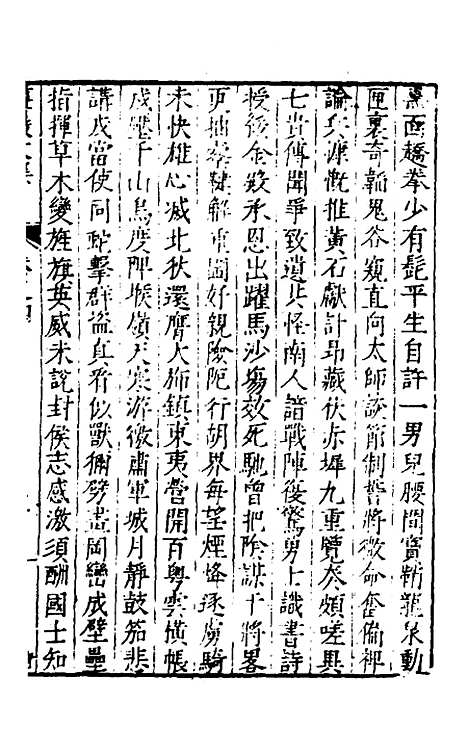 黑面嬌拳少有髭平生自許一男兒腰間寶鞘龍泉動
匣裏奇韜鬼谷窺直向太師談節制誓將微命奮偏裨
論兵慷慨推黃石獻計昂藏伏赤墀九重覽奏頻嗟異
七貴傳聞爭致遺共怪南人諳戰陣復驚男士識書詩
授後金錢承恩出躍馬沙場效死馳曾把陰謀干將畧
更抽秘鍵解重圍好親險阨行胡界每望煙烽逐虜騎
未快雄心滅北狄還膺大斾鎮東夷營開百粵雲橫帳
戍壓千山鳥度陴堠嶺天寒游徼肅軍城月靜鼓笳悲
講戎當使同蛇擊群盜真看似獸獮劈畫岡巒成壁壘
指揮草木變旌旗英威未說封侯志感激須酬國士知